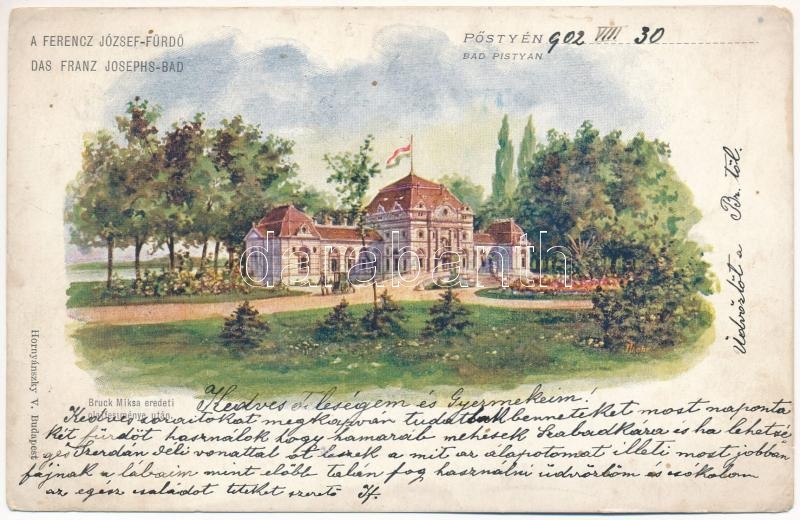 A FERENCZ JÓZSEF-FÜRDŐ
DAS FRANZ JOSEPHS-BAD
PŐSTYÉN 902 VIII 30
BAD PISTYAN
Üdvözlöt a Br. től.
darabanth
Mohr
Hornyánszky V. Budapest
Bruck Miksa eredeti
olajfestménye után.
Kedves feleségem és Gyermekeim!
Kedves soraitokat megkapván tudatlak benneteket most naponta
két fürdőt használok hogy hamaráb mehesek Szabadkára és ha lehetsé-
ges Szerdán déli vonattal ót leszek a mit az álapotomat illeti most jobban
fájnak a lábaim mint előbb talán fog használni üdvözlöm és csókolom
az egész családot titeket szerető If.